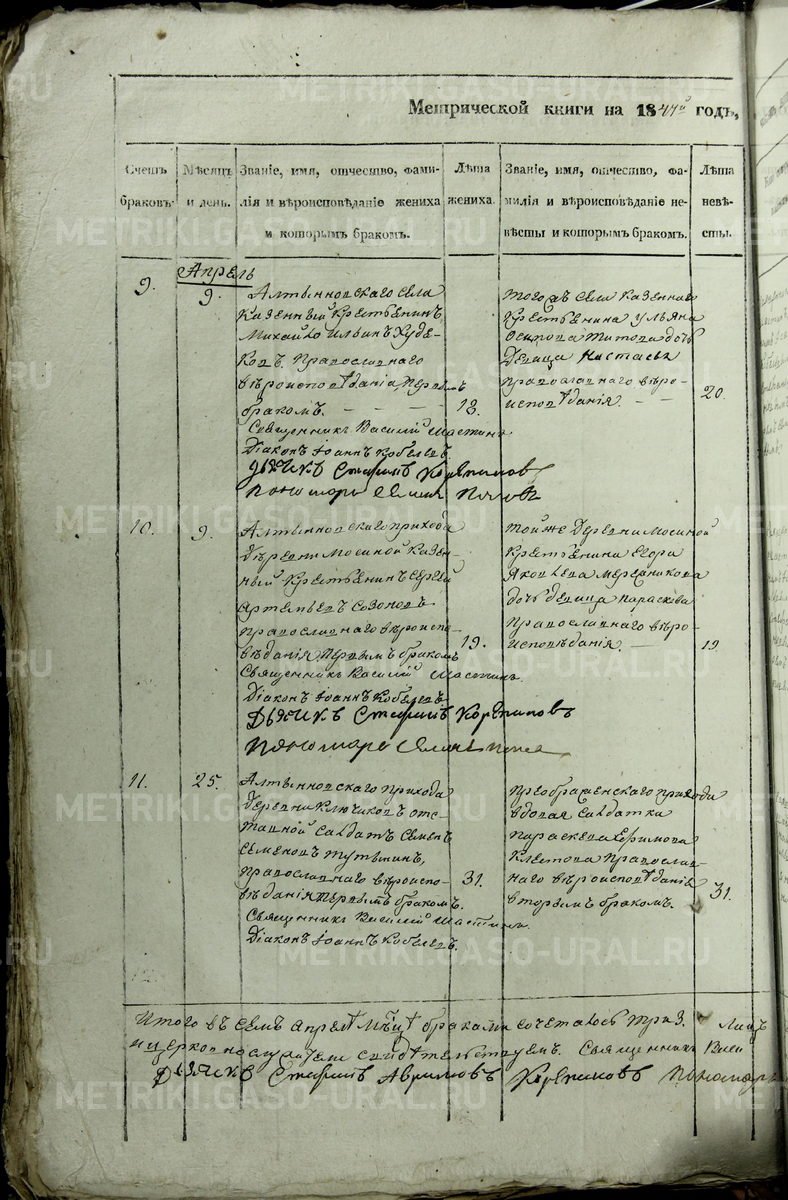 Метрической книги на 1847й годъ,
Счетъ браковъ.
Мѣсяцъ и день.
Званіе, имя, отчество, фами-
лія и вѣроисповѣданіе жениха
и которымъ бракомъ.
Лѣта
жениха.
Званіе, имя, отчество, фа-
милія и вѣроисповѣданіе не-
вѣсты и которымъ бракомъ.
Лѣта
невѣ-
сты.
Апрель
9.
9.
Алтынновскаго села
казенный крестьянинъ
Михайло Ильинъ Худе-
ковъ. Православнаго
вѣроисповѣданія, первымъ
бракомъ.
18.
Священникъ Василій Шастинъ
Діаконъ Іоаннъ Кобелевъ.
Дьячикъ Стефанъ Корепановъ
Пономарь
тогожъ села казеннаго
крестьянина Ульяна
Осипова Титова дочь
девица Настасья
православнаго вѣро-
исповѣданія.
20.
10.
9.
Алтынновскаго прихода
деревни Мосиной казен-
ный крестьянинъ Сергей
Артемьевъ Созоновъ
православнаго вѣроиспо-
вѣданія, первымъ бракомъ
19.
Священникъ Василій Шастинъ.
Діаконъ Іоаннъ Кобелевъ.
Дьячикъ Стефанъ Корепановъ
Пономарь
той же деревни Мосиной
крестьянина Егора
Яковлева Мережникова
дочь девица Параскева
православнаго вѣро-
исповѣданія.
19
11.
25.
Алтынновскаго прихода
деревни Ключиковъ отс-
тавной салдатъ Семенъ
Семеновъ Тутынинъ,
православнаго вѣроиспо-
вѣданія первымъ бракомъ.
31.
Священникъ Василій Шастинъ.
Діаконъ Іоаннъ Кобелевъ.
Преображенскаго прихода
вдовая салдатка
Параскева Ефимова
Клестова православ-
наго вѣроисповѣданія
вторымъ бракомъ.
31.
Итого въ семъ апрелѣ мѣцѣ браками сочеталось три 3. Лицъ
Священникъ Васи
Дьячикъ Стефанъ Авримовъ Корепановъ Пономарь
METRIKI.GASO-URAL.RU